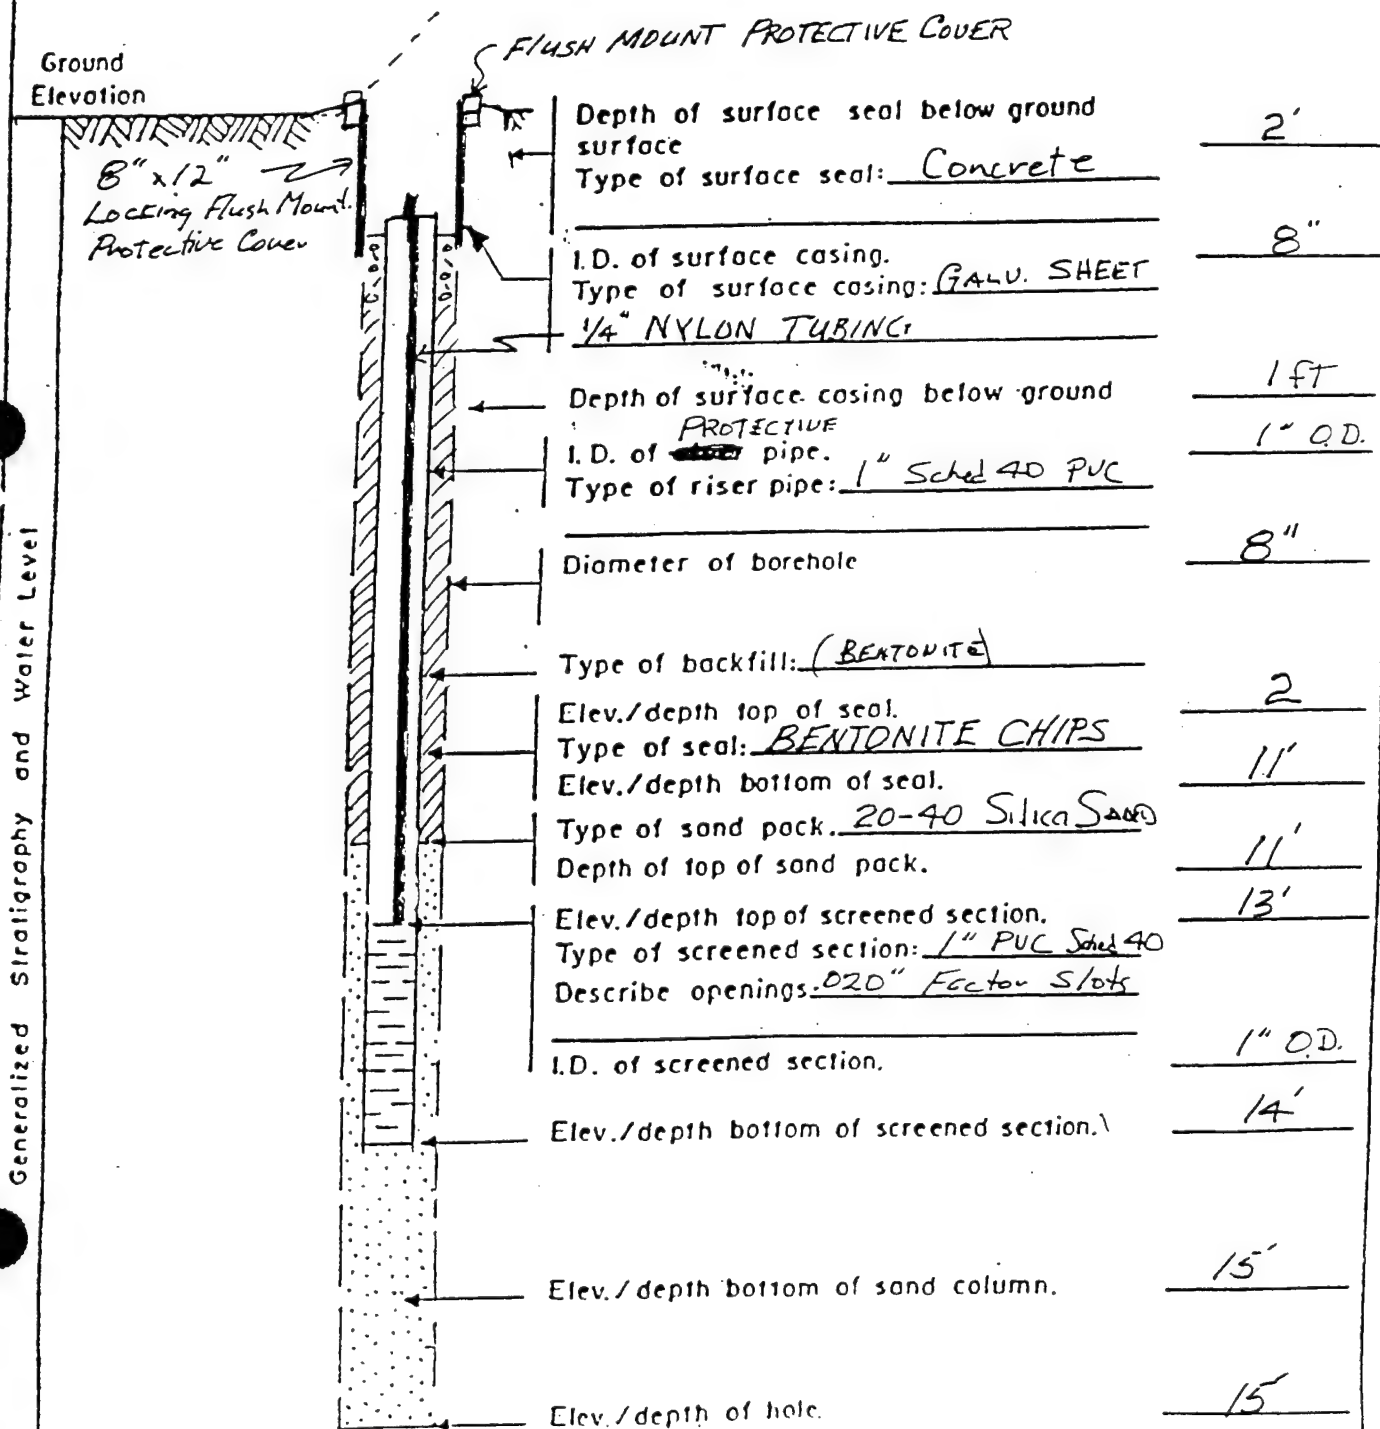 FLUSH MOUNT PROTECTIVE COVER
Ground
Elevation
8" x 12"
Locking Flush Mount.
Protective Cover
Depth of surface seal below ground
surface
2'
Type of surface seal: Concrete
I.D. of surface casing.
8"
Type of surface casing: GALV. SHEET
1/4" NYLON TUBING
Depth of surface casing below ground
1 FT
PROTECTIVE
I.D. of pipe.
1" O.D.
Type of riser pipe: 1" Sched 40 PVC
Diameter of borehole
8"
Type of backfill: (BENTONITE)
Elev./depth top of seal.
2
Type of seal: BENTONITE CHIPS
Elev./depth bottom of seal.
11'
Type of sand pack. 20-40 Silica SAND
Depth of top of sand pack.
11'
Elev./depth top of screened section.
13'
Type of screened section: 1" PVC Sched 40
Describe openings: .020" Factor Slots
I.D. of screened section.
1" O.D.
Elev./depth bottom of screened section.
14'
Elev./depth bottom of sand column.
15'
Elev./depth of hole.
15'
Generalized Stratigraphy and Water Level